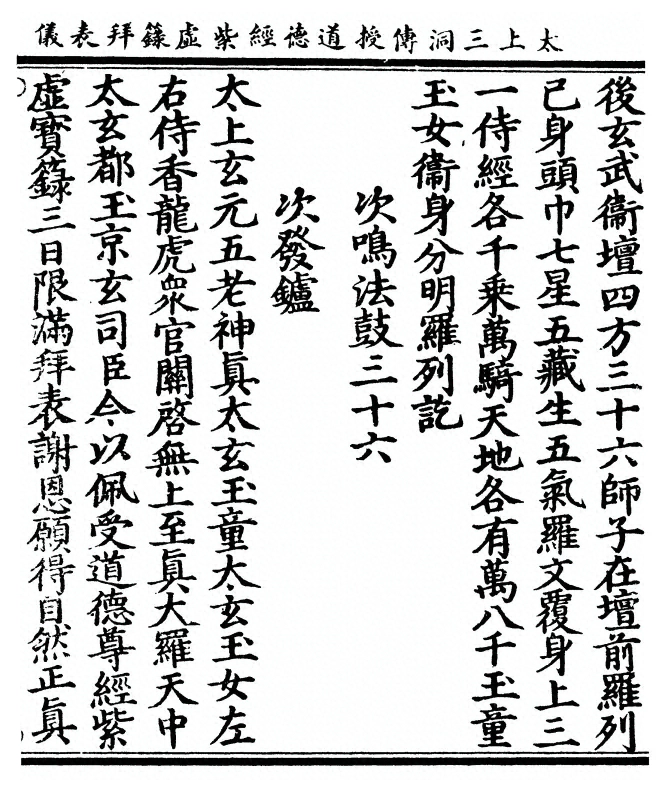 太上三洞傳授道德經紫虛籙拜表儀
後玄武衞壇四方三十六師子在壇前羅列
己身頭巾七星五藏生五氣羅文覆身上三
一侍經各千乘萬騎天地各有萬八千玉童
玉女衞身分明羅列訖
次鳴法鼓三十六
次發鑪
太上玄元五老神眞太玄玉童太玄玉女左
右侍香龍虎衆官關啓無上至眞大羅天中
太玄都玉京玄司臣今以佩受道德尊經紫
虛寶籙三日限滿拜表謝恩願得自然正眞